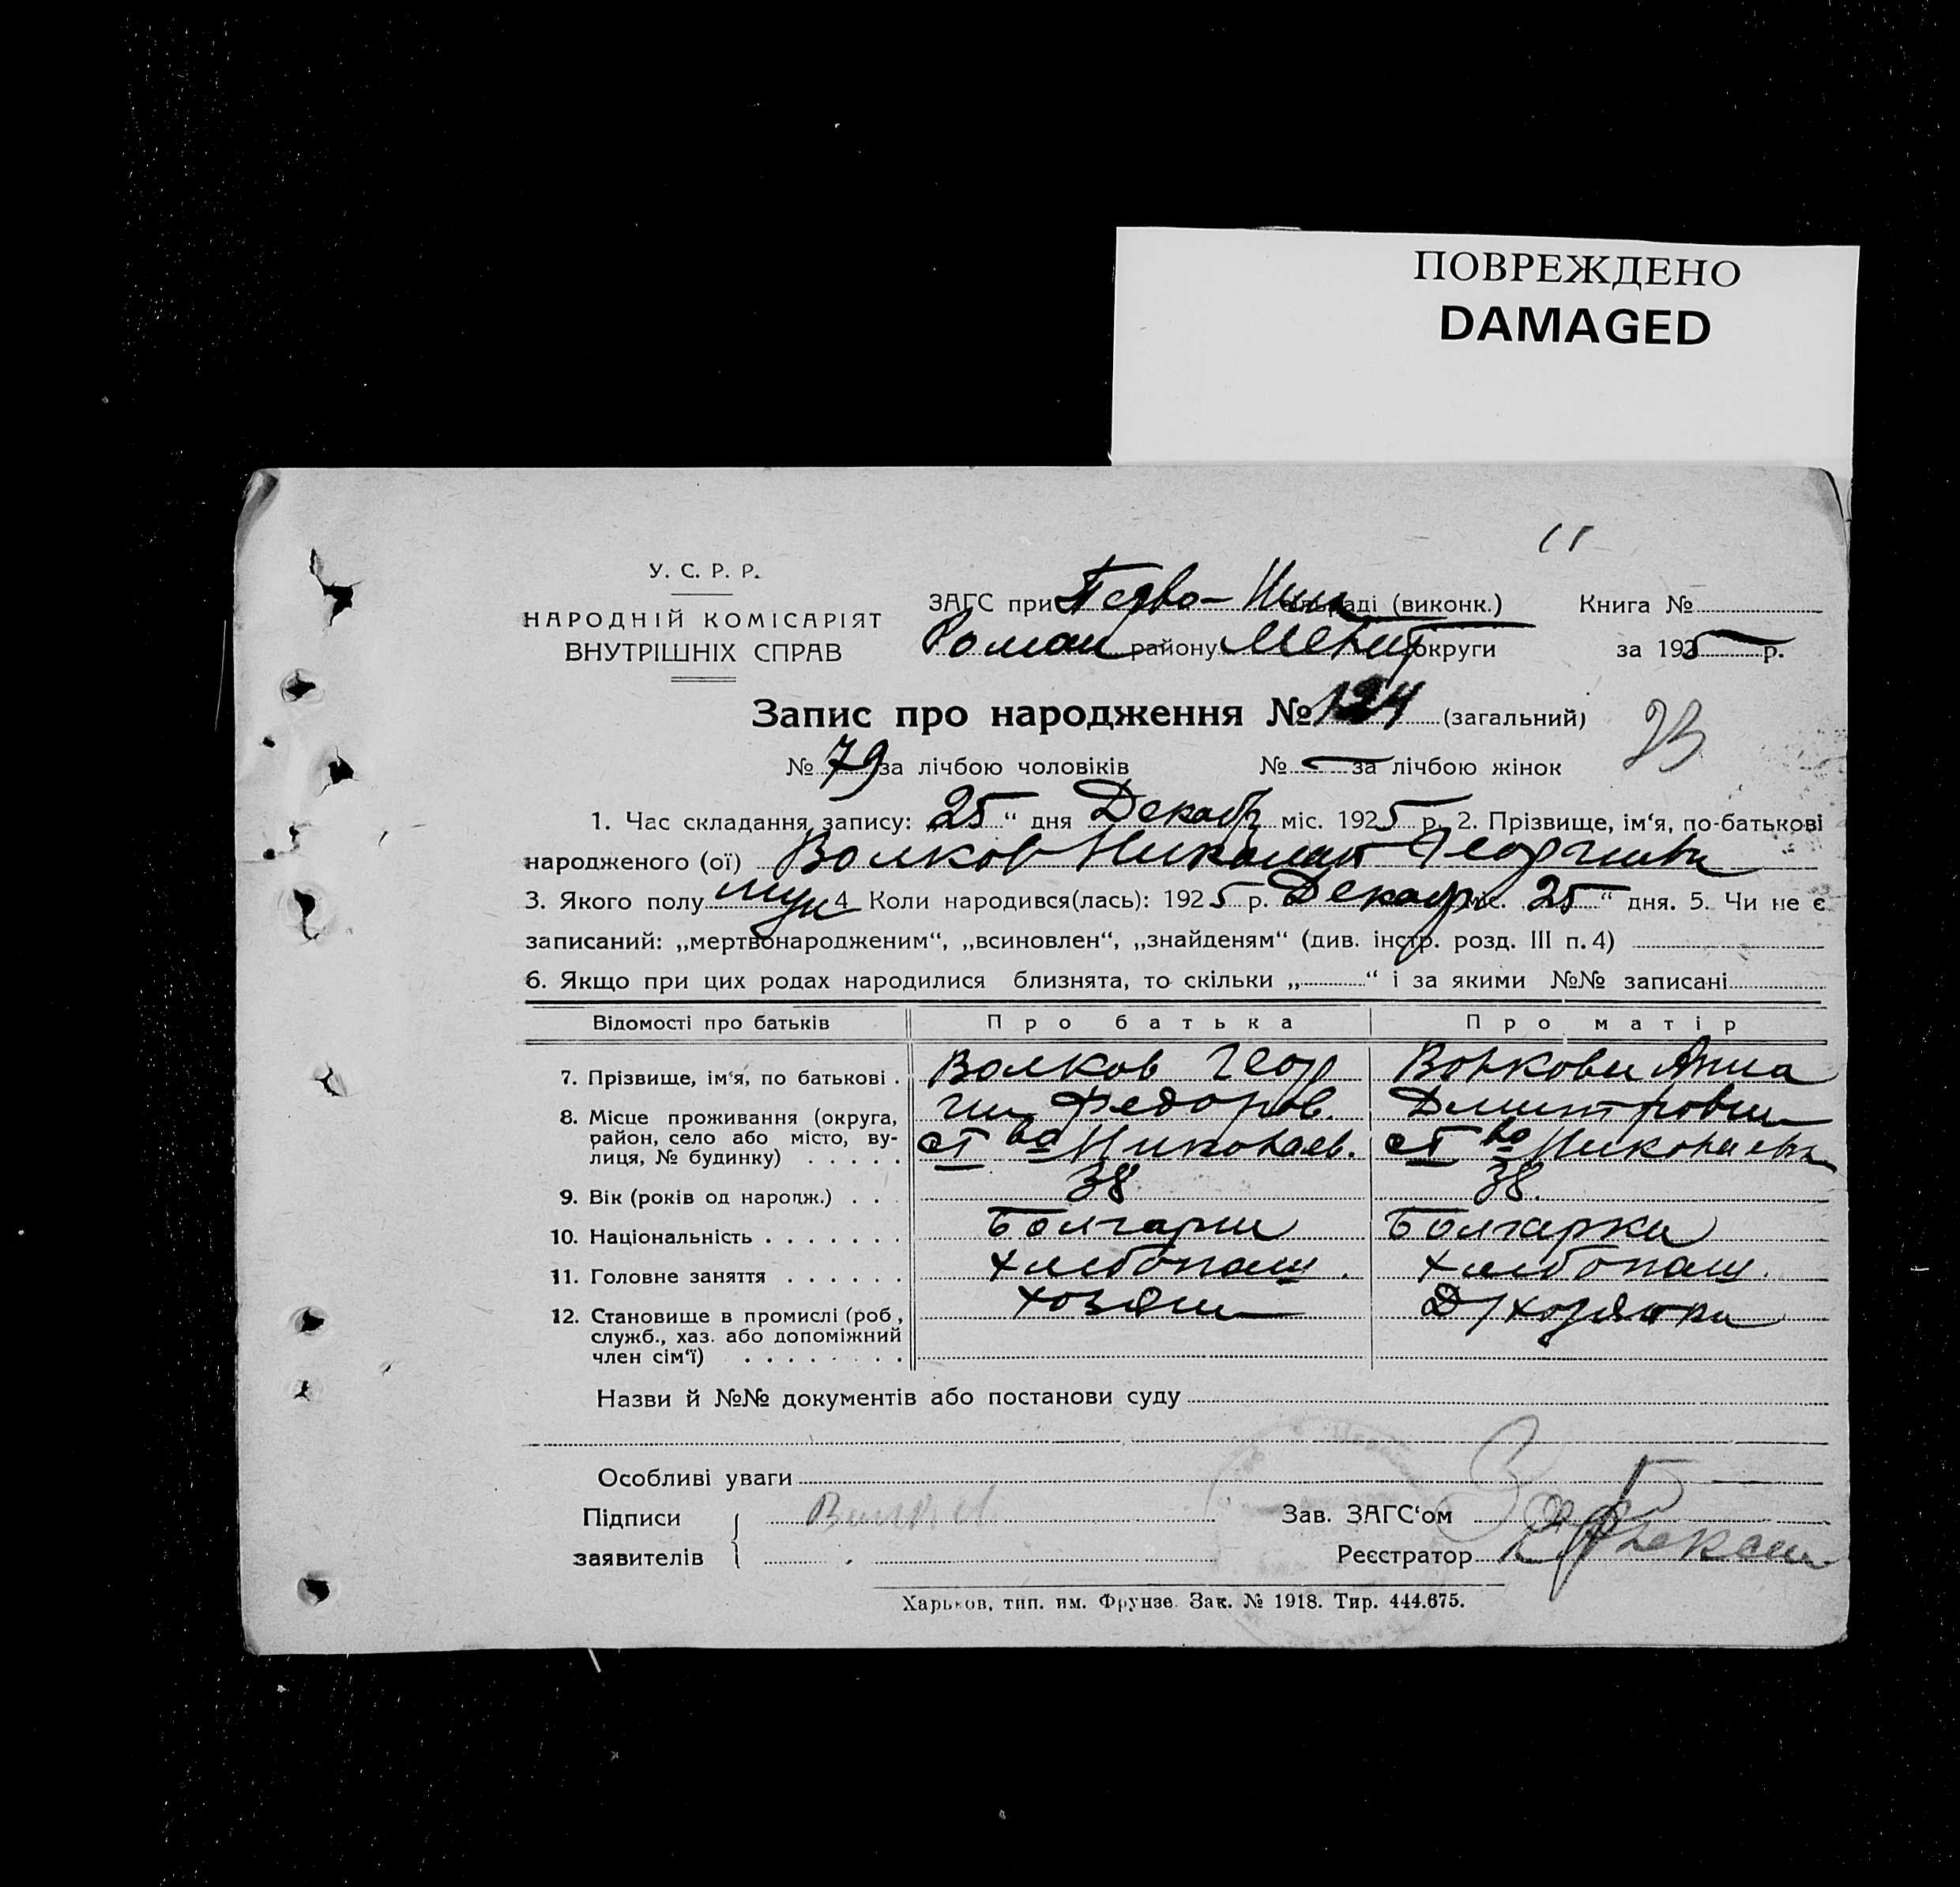 ПОВРЕЖДЕНО
DAMAGED
У. С. Р. Р.
НАРОДНІЙ КОМІСАРІЯТ
ВНУТРІШНІХ СПРАВ
ЗАГС при Перво-Ник сільраді (виконк.)
Роман району Меліт округи
Книга №
за 1925 р.
Запис про народження № 124 (загальний)
№ 79 за лічбою чоловіків № — за лічбою жінок
1. Час складання запису: „25“ дня Декабр міс. 1925 р. 2. Прізвище, ім‘я, по-батькові
народженого (ої) Волков Николай Георгиев
3. Якого полу муж 4 Коли народився(лась): 1925 р. Декабр міс. 25“ дня. 5. Чи не є
записаний: „мертвонародженим“, „всиновлен“, „знайденям“ (див. інстр. розд. III п. 4)
6. Якщо при цих родах народилися близнята, то скільки „ “ і за якими №№ записані
Відомості про батьків Про батька Про матір
7. Прізвище, ім‘я, по батькові . Волков Геор Волкова Анна
8. Місце проживання (округа, гий Федоров. Дмитровна
район, село або місто, ву-
лиця, № будинку) . . . . . ст во Николаев. ст во Николаев
9. Вік (років од народж.) . . 38 38.
10. Національність . . . . . . . Болгарин Болгарка
11. Головне заняття . . . . . . хлебопаш. хлебопаш.
12. Становище в промислі (роб, хозяин Д/хозяйка
служб., хаз. або допоміжний
член сім‘ї) . . . . . . . .
Назви й №№ документів або постанови суду
Особливі уваги
Підписи
заявителів
Зав. ЗАГС‘ом
Реєстратор
Харьков, тип. им. Фрунзе. Зак. № 1918. Тир. 444.675.